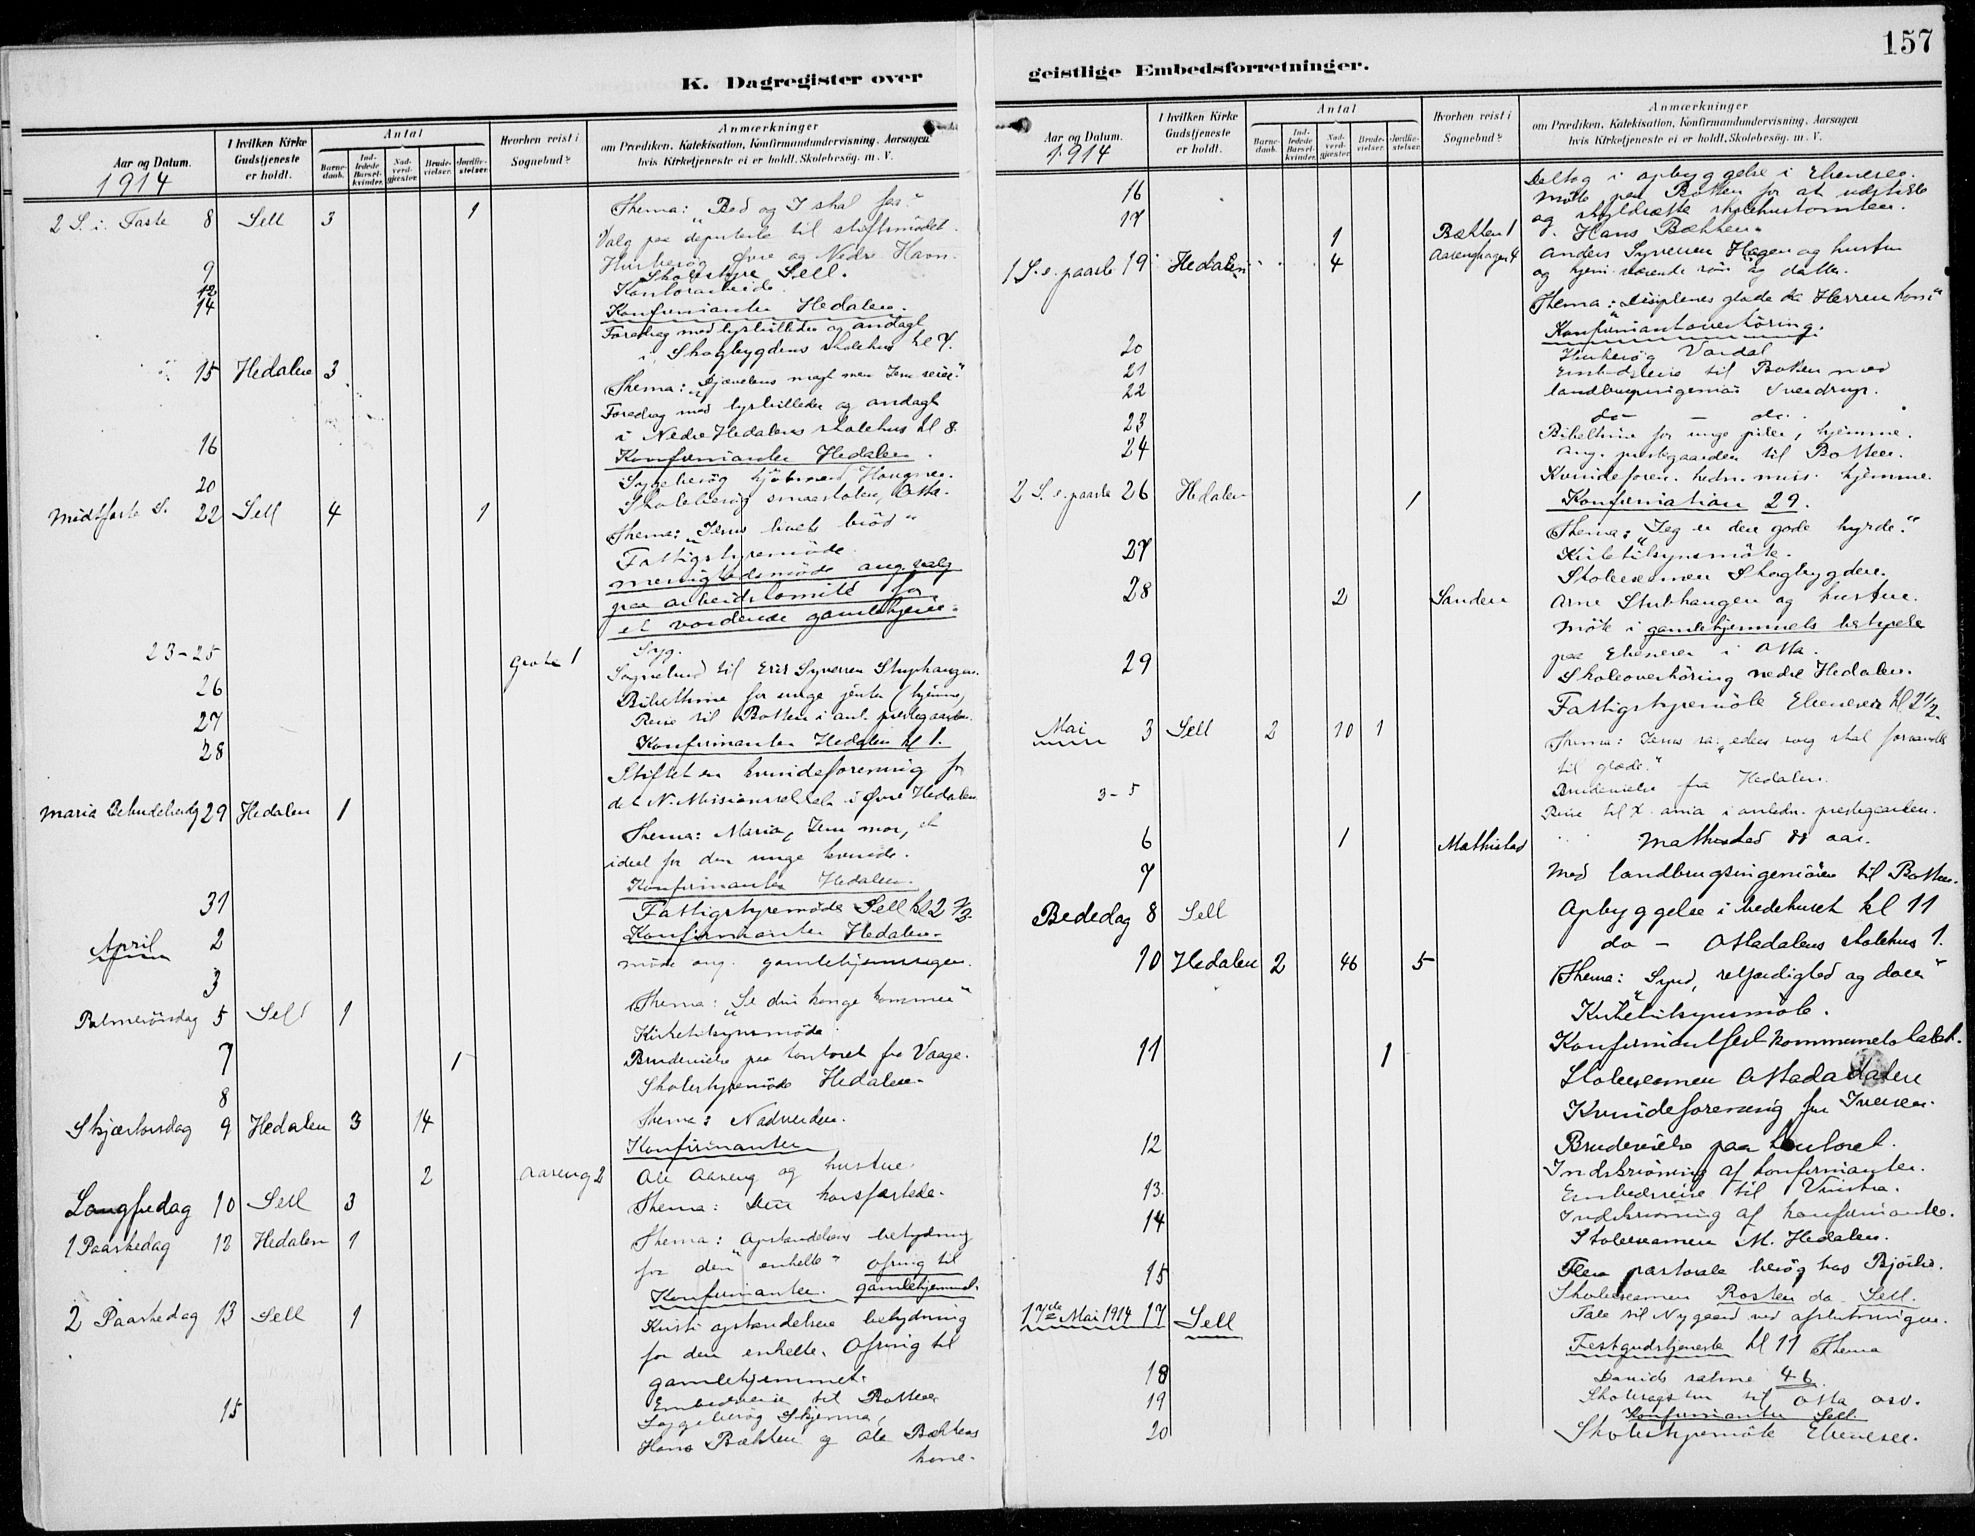 157
K. Dagregister over
geistlige Embedsforretninger.
Aar og Datum.
1914
I hvilken Kirke Gudstjeneste er holdt.
Antal
Barne-daab.
Ind-ledede Barsel-kvinder.
Nad-verd-gjæster.
Brude-vielser.
Jordfæ-stelser.
Hvorhen reist i Sognebud?
Anmærkninger
om Prædiken, Katekisation, Konfirmandundervisning, Aarsagen
hvis Kirketjeneste ei er holdt, Skolebesøg. m. V.
2 S. i. Faste 8 Sell 3 1 Thema: "Bed og I skal faa."
Valg paa deputerte til stiftsmødet.
Husbesøg Øvre og Nedre Havn.
9 Skolestyre Sell.
12 Kontorarbeide.
14 Konfirmanter Hedalen.
Foredrag med lysbilleder og andagt
i Skogbygdens skolehus kl 7.
15 Hedalen 3 Thema: Djævelens magt men Jesu seier."
Foredrag med lysbilleder og andagt
i Nedre Hedalens skolehus kl 8.
16 Konfirmanter Hedalen.
Sygebesøg Haugen.
20 Skolebesøg smaaskolen, Otta.
Midtfaste S. 22 Sell 4 1 Thema: "Jesus livets brød"
Fattigstyremøde.
menighedsmøde ang. valg
paa arbeidskomite for
et vordende gamlehjem.
23-25 Syg.
26 Grote 1 Sognebud til Erik Syversen Stuphaugen.
Bibelthime for unge jenter hjemme,
27 Reise til Botten i anl. prestegaarden.
28 Konfirmanter Hedalen kl 1.
Stiftet en kvindeforening for
det N. Missionsselskab i Øvre Hedalen
Maria Bebudelsesdag 29 Hedalen 1 Thema: Maria, Jesu mor, et
ideal for den unge kvinde.
Konfirmanter Hedalen.
31 Fattigstyremøde Sell kl 2 1/2.
April 2 Konfirmanter Hedalen.
3 møde ang. gamlehjemssagen.
Palmesøndag 5 Sell 1 Thema: "Se din konge kommer"
Kirketilsynsmøde.
7 1 Brudevielse paa kontoret fra Vaage.
8 Skolestyremøde Hedalen.
Skjærtorsdag 9 Hedalen 3 14 Thema: Nadverden.
Konfirmanter
2 Aaseng 2 Ole Aaseng og hustru.
Langfredag 10 Sell 3 Thema: Den korsfæstede.
1 Paaskedag 12 Hedalen 1 Thema: Opstandelsens betydning
for den "enkelte" Ofring til
Konfirmanter. gamlehjemmet.
2 Paaskedag 13 Sell 1 Kristi opstandelses betydning
for den enkelte. Ofring til
gamlehjemmet.
15 Embedsreise til Botten
Sygebesøg Skjenna,
Hans Bækken og Ole Bækkens
kone.
Aar og Datum.
1914
I hvilken Kirke Gudstjeneste er holdt.
Antal
Barne-daab.
Ind-ledede Barsel-kvinder.
Nad-verd-gjæster
Brude-vielser.
Jordfæ-stelser.
Hvorhen reist i Sognebud?
Anmærkninger
om Prædiken, Katekisation, Konfirmandundervisning, Aarsagen
hvis Kirketjeneste ei er holdt, Skolebesøg. m. V.
16 Deltog i opbyggelse i Ebeneser.
Møte paa Botten for at udstikke
17 og skyldsætte skolehustomten.
1 Bækken 1 Hans Bækken.
1 S. e. paaske 19 Hedalen 4 Aasenghagen 4 Anders Syversen Hagen og hustru
og hjemværende søn og datter.
Thema: "Disiplenes glæde da Herren kom"
Konfirmantoverhøring.
20 Husbesøg Vardal
21 Embedsreise til Botten med
22 landbrugsingeniør Sverdrup.
do — do.
23 Bibelthime for unge piker, hjemme.
24 Ang. prestegaarden til Botten.
Kvindeforen. hedn. miss. hjemme.
2 S. e. paaske 26 Hedalen 1 Konfirmation 29.
Thema: "Jeg er den gode hyrde."
27 Kirketilsynsmøte.
Skoleexamen Skogbygden.
28 2 Sanden Arne Stubhaugen og hustru.
Møte i gamlehjemmets bestyrelse
paa Ebeneser i Otta.
29 Skoleoverhøring nedre Hedalen.
Fattigstyremøte Ebeneser kl 2 1/2.
Mai 3 Sell 2 10 1 Thema: Jesus sa: "eders sorg skal forvandles
til glæde."
Brudevielse fra Hedalen.
3-5 Reise til X.ania i anledn. prestegaarden.
6 1 Mathistad Mathistad 88 aar.
7 Med landbrugsingeniøren til Botten.
Bededag 8 Sell Opbyggelse i bedehuset kl 11
do — Ottadalens skolehus 1.
10 Hedalen 2 46 5 Thema: "Synd, retfærdighed og dom"
Kirketilsynsmøte.
11 1 Konfirmantfest kommunelokalet.
Skoleexamen Ottadalen
Kvindeforening fru Iversen.
12 Brudevielse paa kontoret.
Indskrivning af konfirmanter.
13. Embedsreise til Vinstra.
14 Indskrivning af konfirmanter.
Skoleexamen M. Hedalen.
15 Flere pastorale besøg hos Bjølie.
Skoleexamen Rosten do. Sell.
17de Mai 1914 17 Sell Tale til Nygaard ved afslutningen.
Festgudstjeneste kl 11 Thema
18 Davids salme 46.
19 til Otta osv.
Konfirmanter Sell.
20 Skolestyremøte Ebeneser.